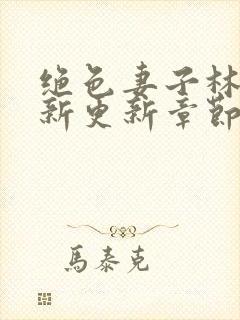 绝色妻子林
新更新章節
馬泰克